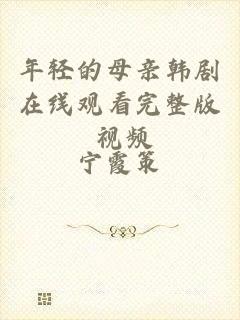 年轻的母亲韩剧
在线观看完整版
视频
宁霞策